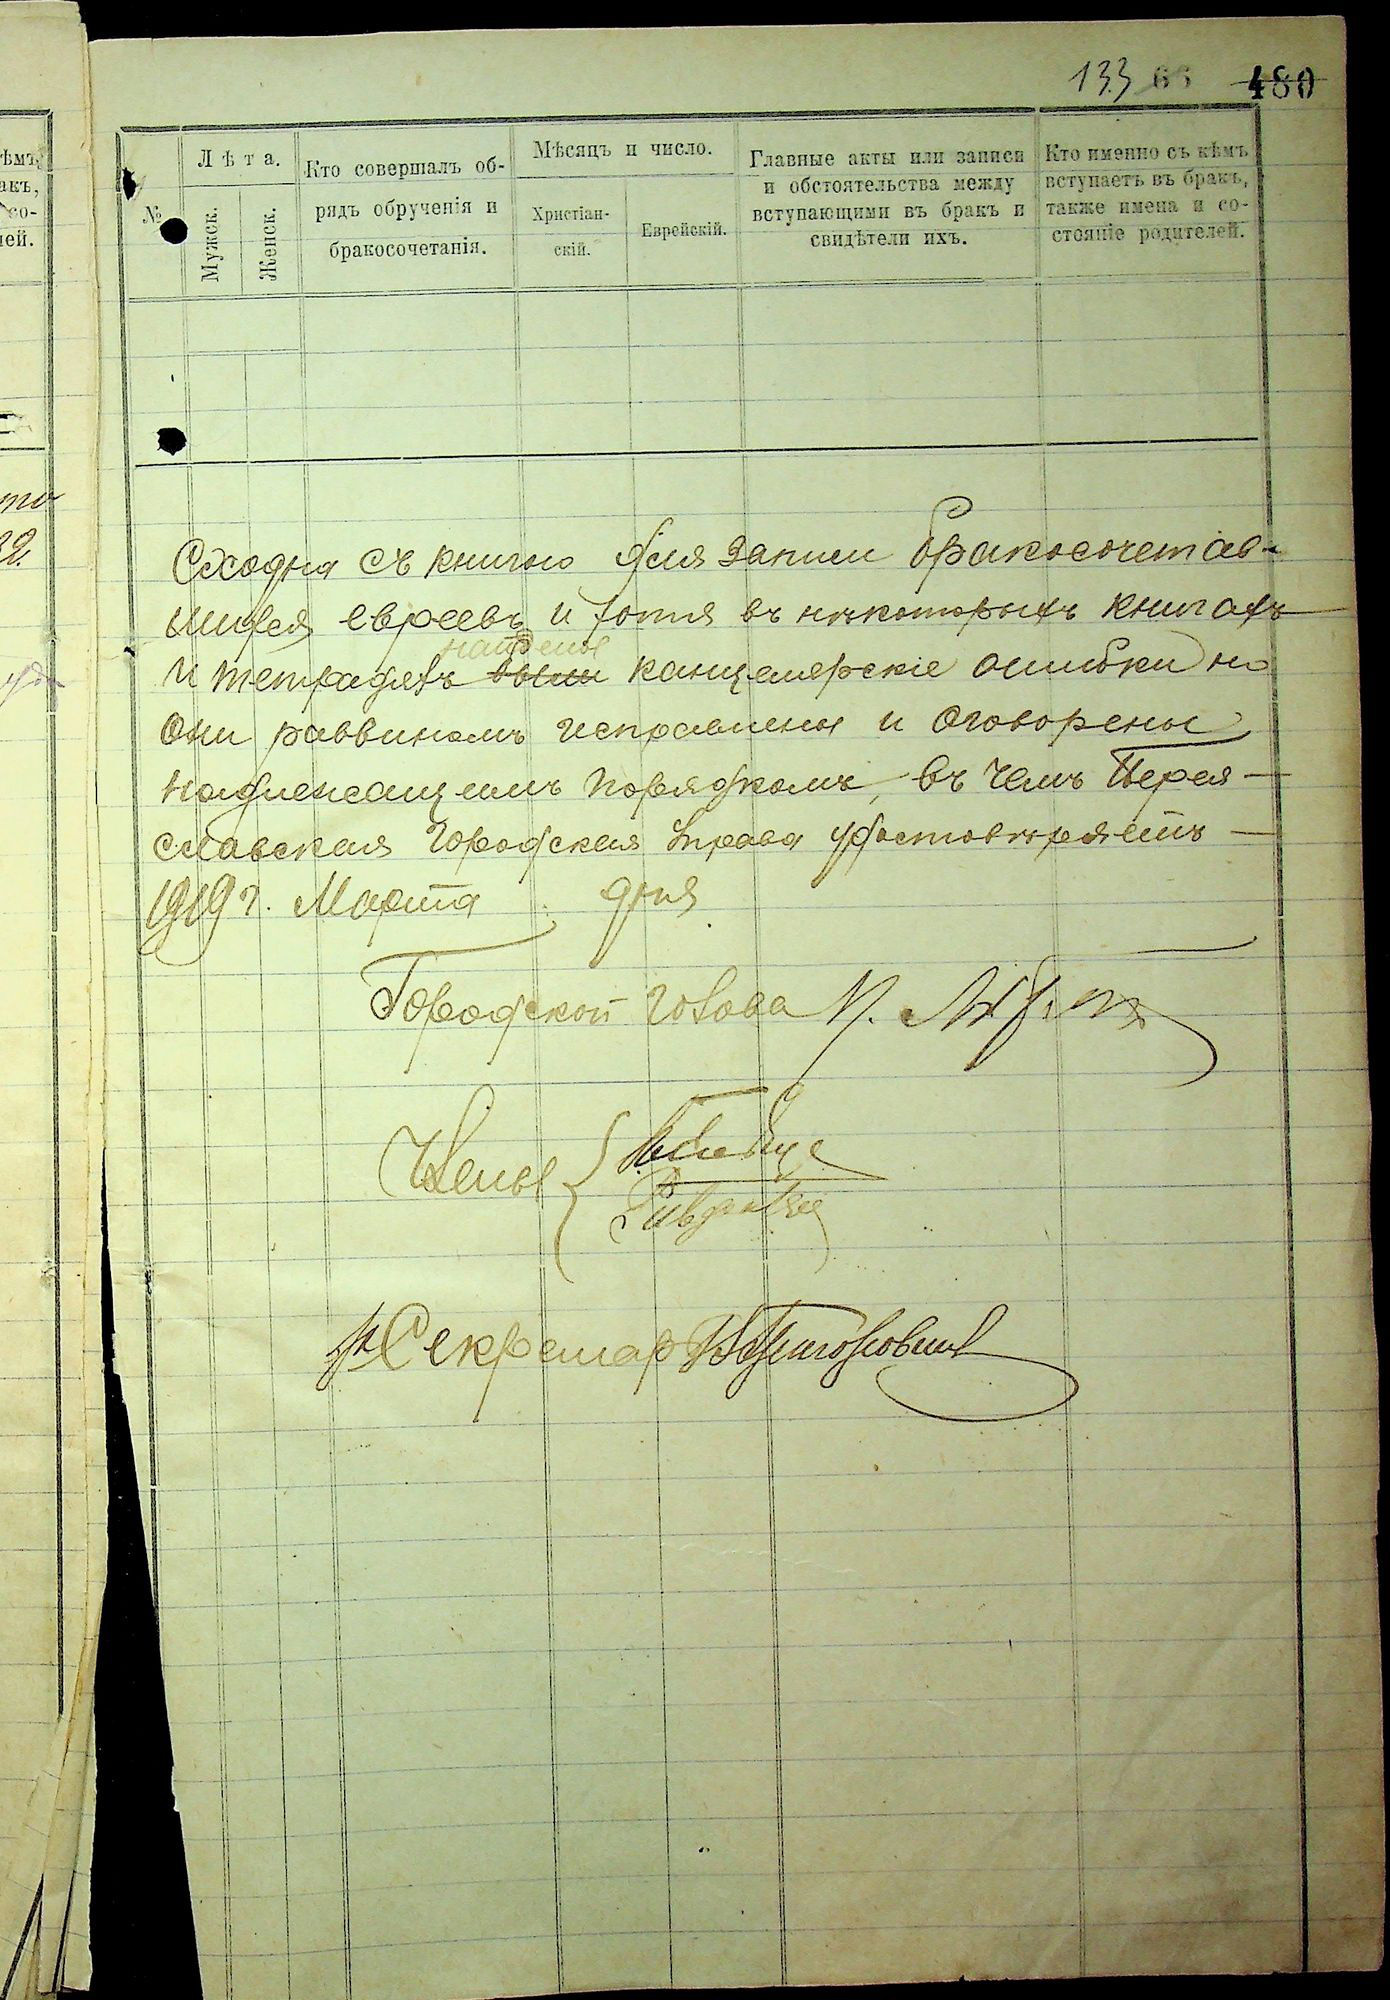 133 66 480
Лѣта.
Мужск.
Женск.
№
Кто совершалъ об-
рядъ обрученія и
бракосочетанія.
Мѣсяцъ и число.
Христіан-
скій.
Еврейскій.
Главные акты или записи
и обстоятельства между
вступающими въ бракъ и
свидѣтели ихъ.
Кто именно съ кѣмъ
вступаетъ въ бракъ,
также имена и со-
стояніе родителей.
Сходна съ книгою для записи бракосочетав-
шихся евреевъ и хотя въ нѣкоторыхъ книгахъ
найдены
и тетрадяхъ были канцелярскіе ошибки но
они раввиномъ исправлены и оговорены
надлежащимъ порядкомъ, въ чемъ Перея-
славская Городская Управа удостовѣряетъ
1919 г. Марта дня
Городской голова
Члены
Секретарь